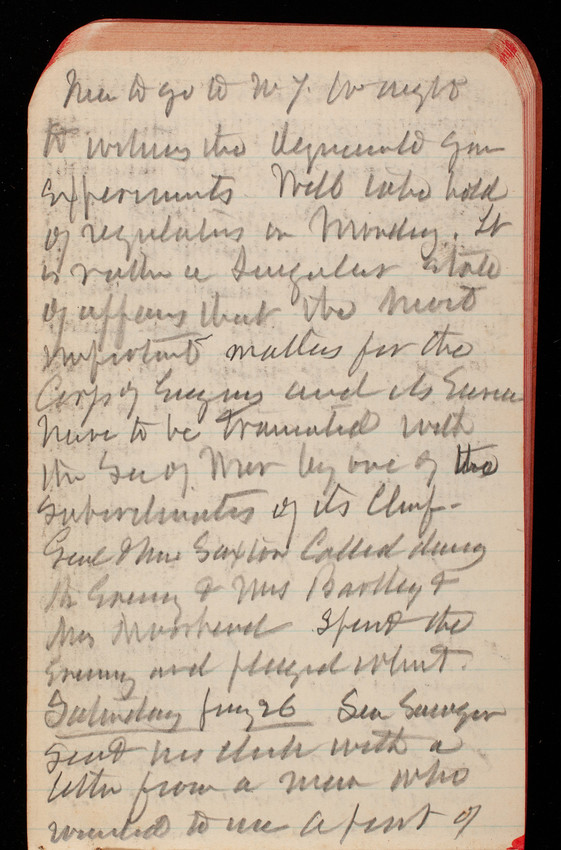 to go to N.Y. to night
to witness the dynamite gun
experiments Will take hold
of regulations on Monday. It
is rather a singular state
of affairs that the most
important matters for the
Corps of Engrs and its
have to be transacted with
the Sec of War by one of the
subordinates of its Chief.
Genl & Mrs Saxton called during
the Evening & Mrs Bartley &
Mrs Moorhead spent the
Evening and played whist.
Saturday Jany 26 Sen Sawyer
sent his clerk with a
letter from a man who
wanted to use a part of